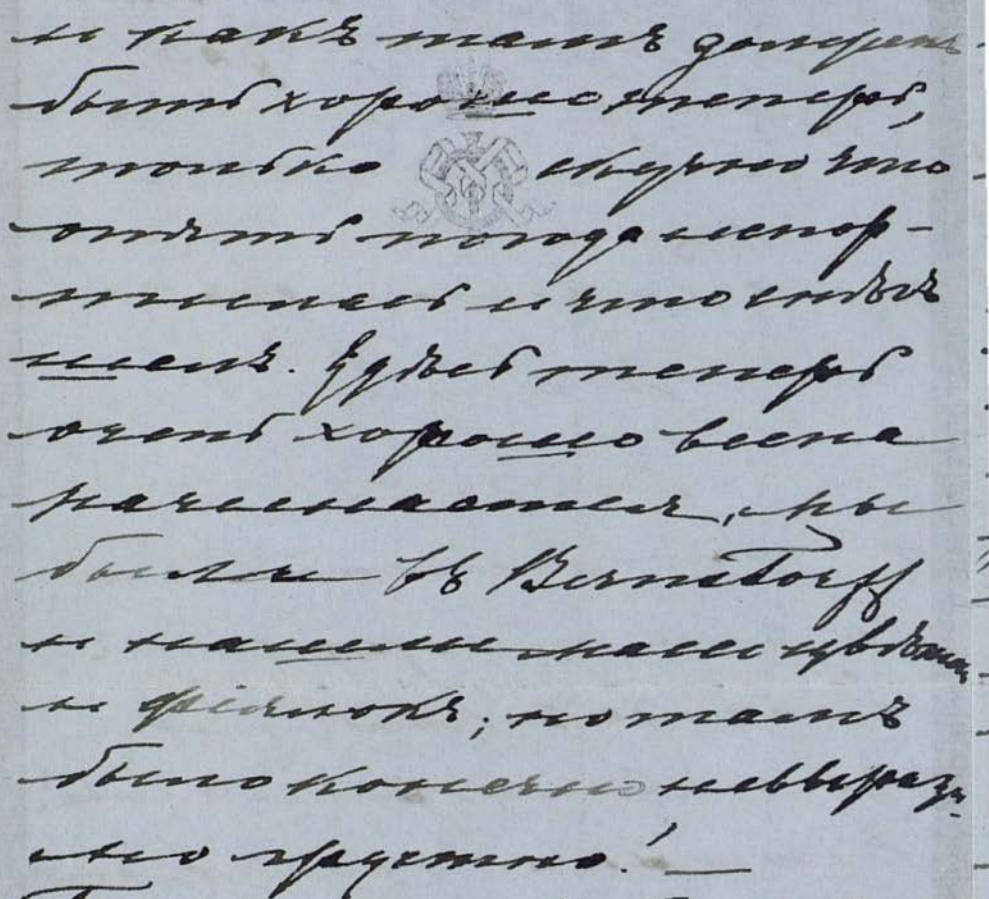 и какъ тамъ должно
быть хорошо теперь,
только скучно что
опять погода испор-
тилась и что снѣгъ
шелъ. Здѣсь теперь
очень хорошо весна
начинается, мы
были въ Bernstorff
и нашли массу цвѣтовъ
и фіялокъ; но тамъ
было конечно невыраз-
имо грустно! —